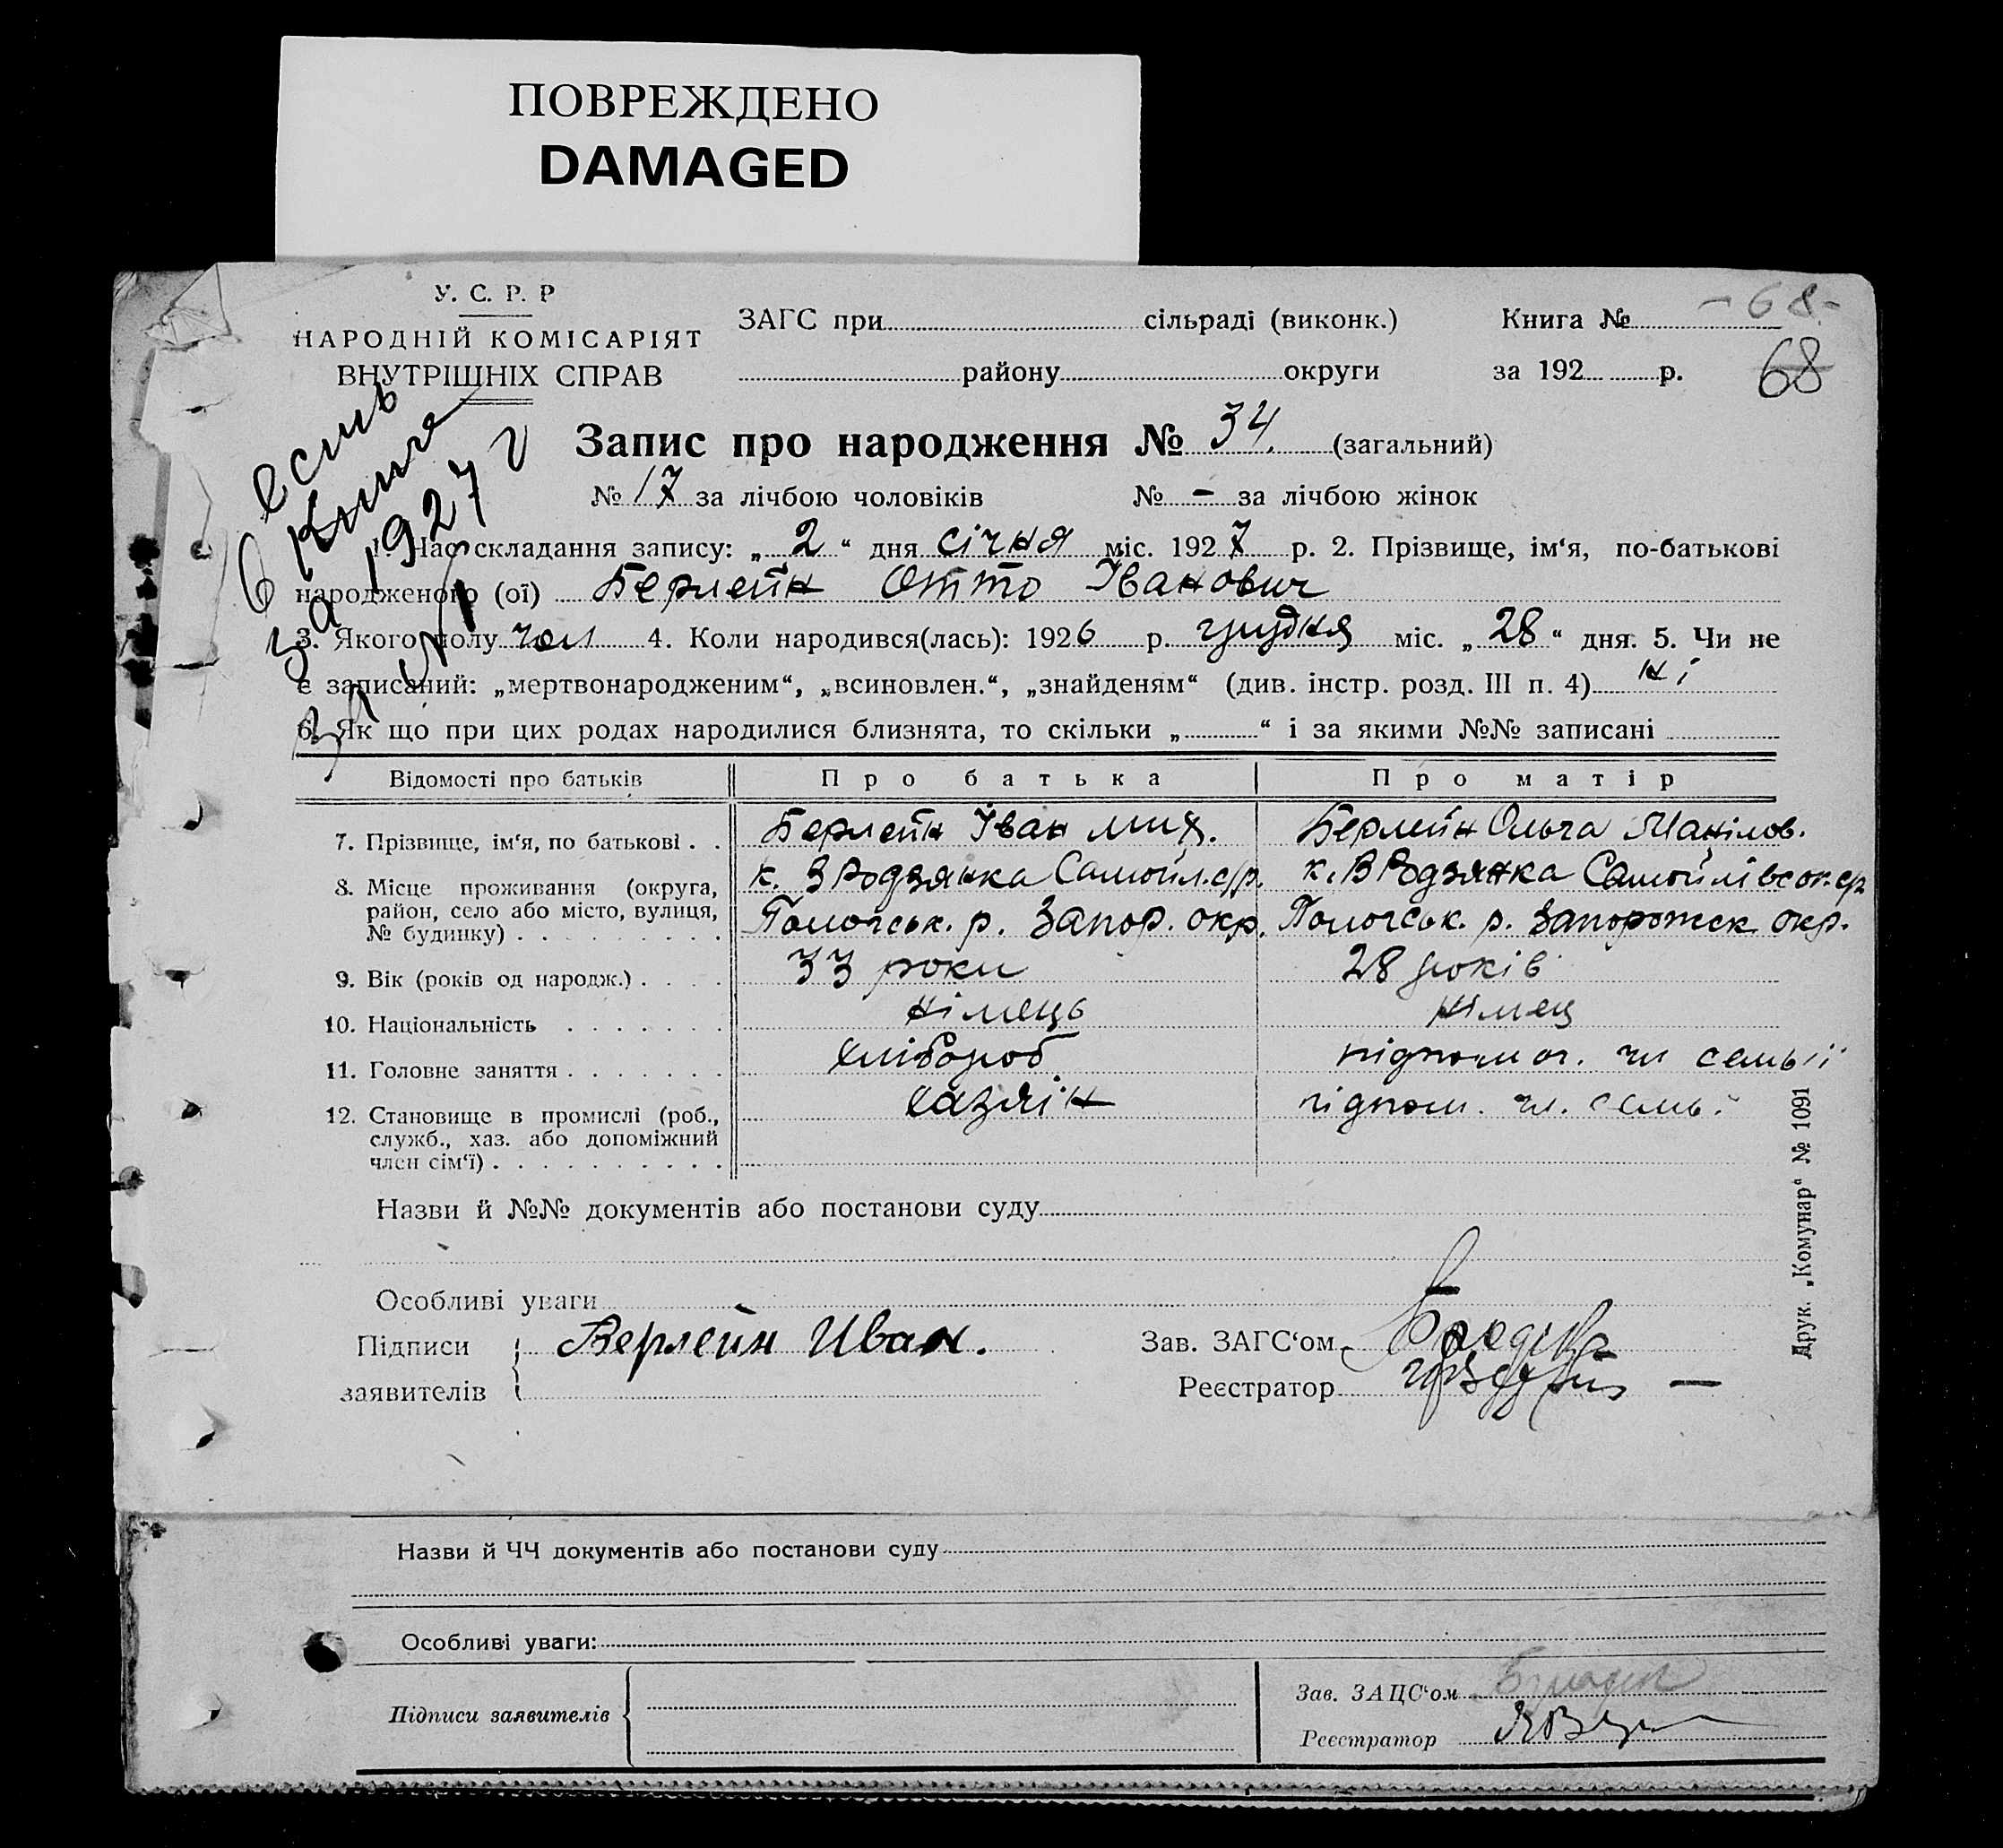 ПОВРЕЖДЕНО
DAMAGED
У. С. Р. Р
НАРОДНІЙ КОМІСАРІЯТ
ВНУТРІШНІХ СПРАВ
ЗАГС при сільраді (виконк.)
району округи
Книга №
за 192 р.
- 68 -
68
есть
в книге
за 1927 г
Запис про народження № 34. (загальний)
№ 17 за лічбою чоловіків № - за лічбою жінок
1. Час складання запису: „ 2 “ дня січня міс. 1927 р. 2. Прізвище, ім‘я, по-батькові
народженого (ої) Берлейн Отто Іванович
3. Якого полу чол 4. Коли народився(лась): 1926 р. грудня міс. „ 28 “ дня. 5. Чи не
є записаний: „мертвонародженим“, „всиновлен.“, „знайденям“ (див. інстр. розд. III п. 4) ні
6. Як що при цих родах народилися близнята, то скільки „ “ і за якими №№ записані
Відомості про батьків Про батька Про матір
7. Прізвище, ім‘я, по батькові . . Берлейн Іван Мих. Берлейн Ольга
8. Місце проживання (округа, район, село або місто, вулиця, № будинку) . . . . . . . . . к. Родзянка Самойл. с/р. к. В Родзянка
Пологськ. р. Запор. окр. Пологськ. р. Запорожск окр.
9. Вік (років од народж.) . . . . 33 роки 28 років
10. Національність . . . . . . . німець німец
11. Головне заняття . . . . . . . хлібороб підпомог. чл семьії
12. Становище в промислі (роб., служб., хаз. або допоміжний член сім‘ї) . . . . . . . . . . хазяїн підпом. чл. семьї
Назви й №№ документів або постанови суду
Особливі уваги
Підписи заявителів Берлейн Иван.
Зав. ЗАГС‘ом
Реєстратор
Друк. „Комунар“ № 1091
Назви й ЧЧ документів або постанови суду
Особливі уваги:
Підписи заявителів
Зав. ЗАЦС‘ом
Реєстратор